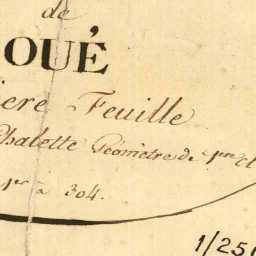 de
OUÉ
iere Feuille
Chalette Géometre de 1ere cl
1er à 304.
1/250